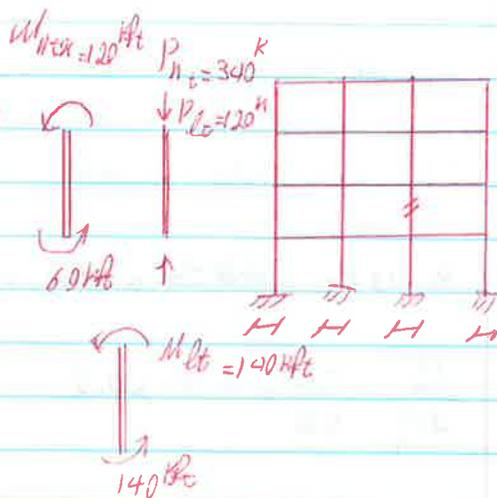 M_ntx=120 kft
P_nt=340 K
P_lt=120 K
60 kft
M_lt=140 kft
140 kft